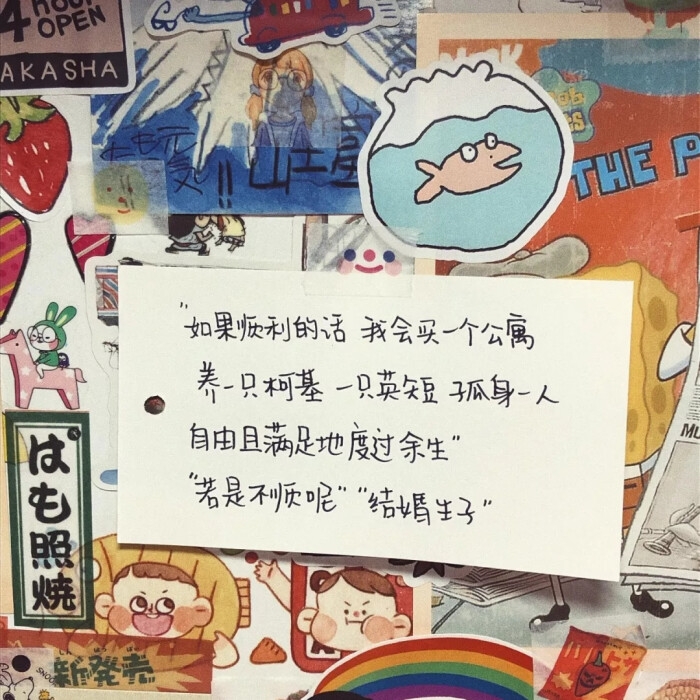 4 HOUR
OPEN
AKASHA
山
THE P
"如果顺利的话 我会买一个公寓
养一只柯基 一只英短 孑孤身一人
自由且满足地度过余生"
"若是不顺呢" "结婚生子"
はも照焼
新発売